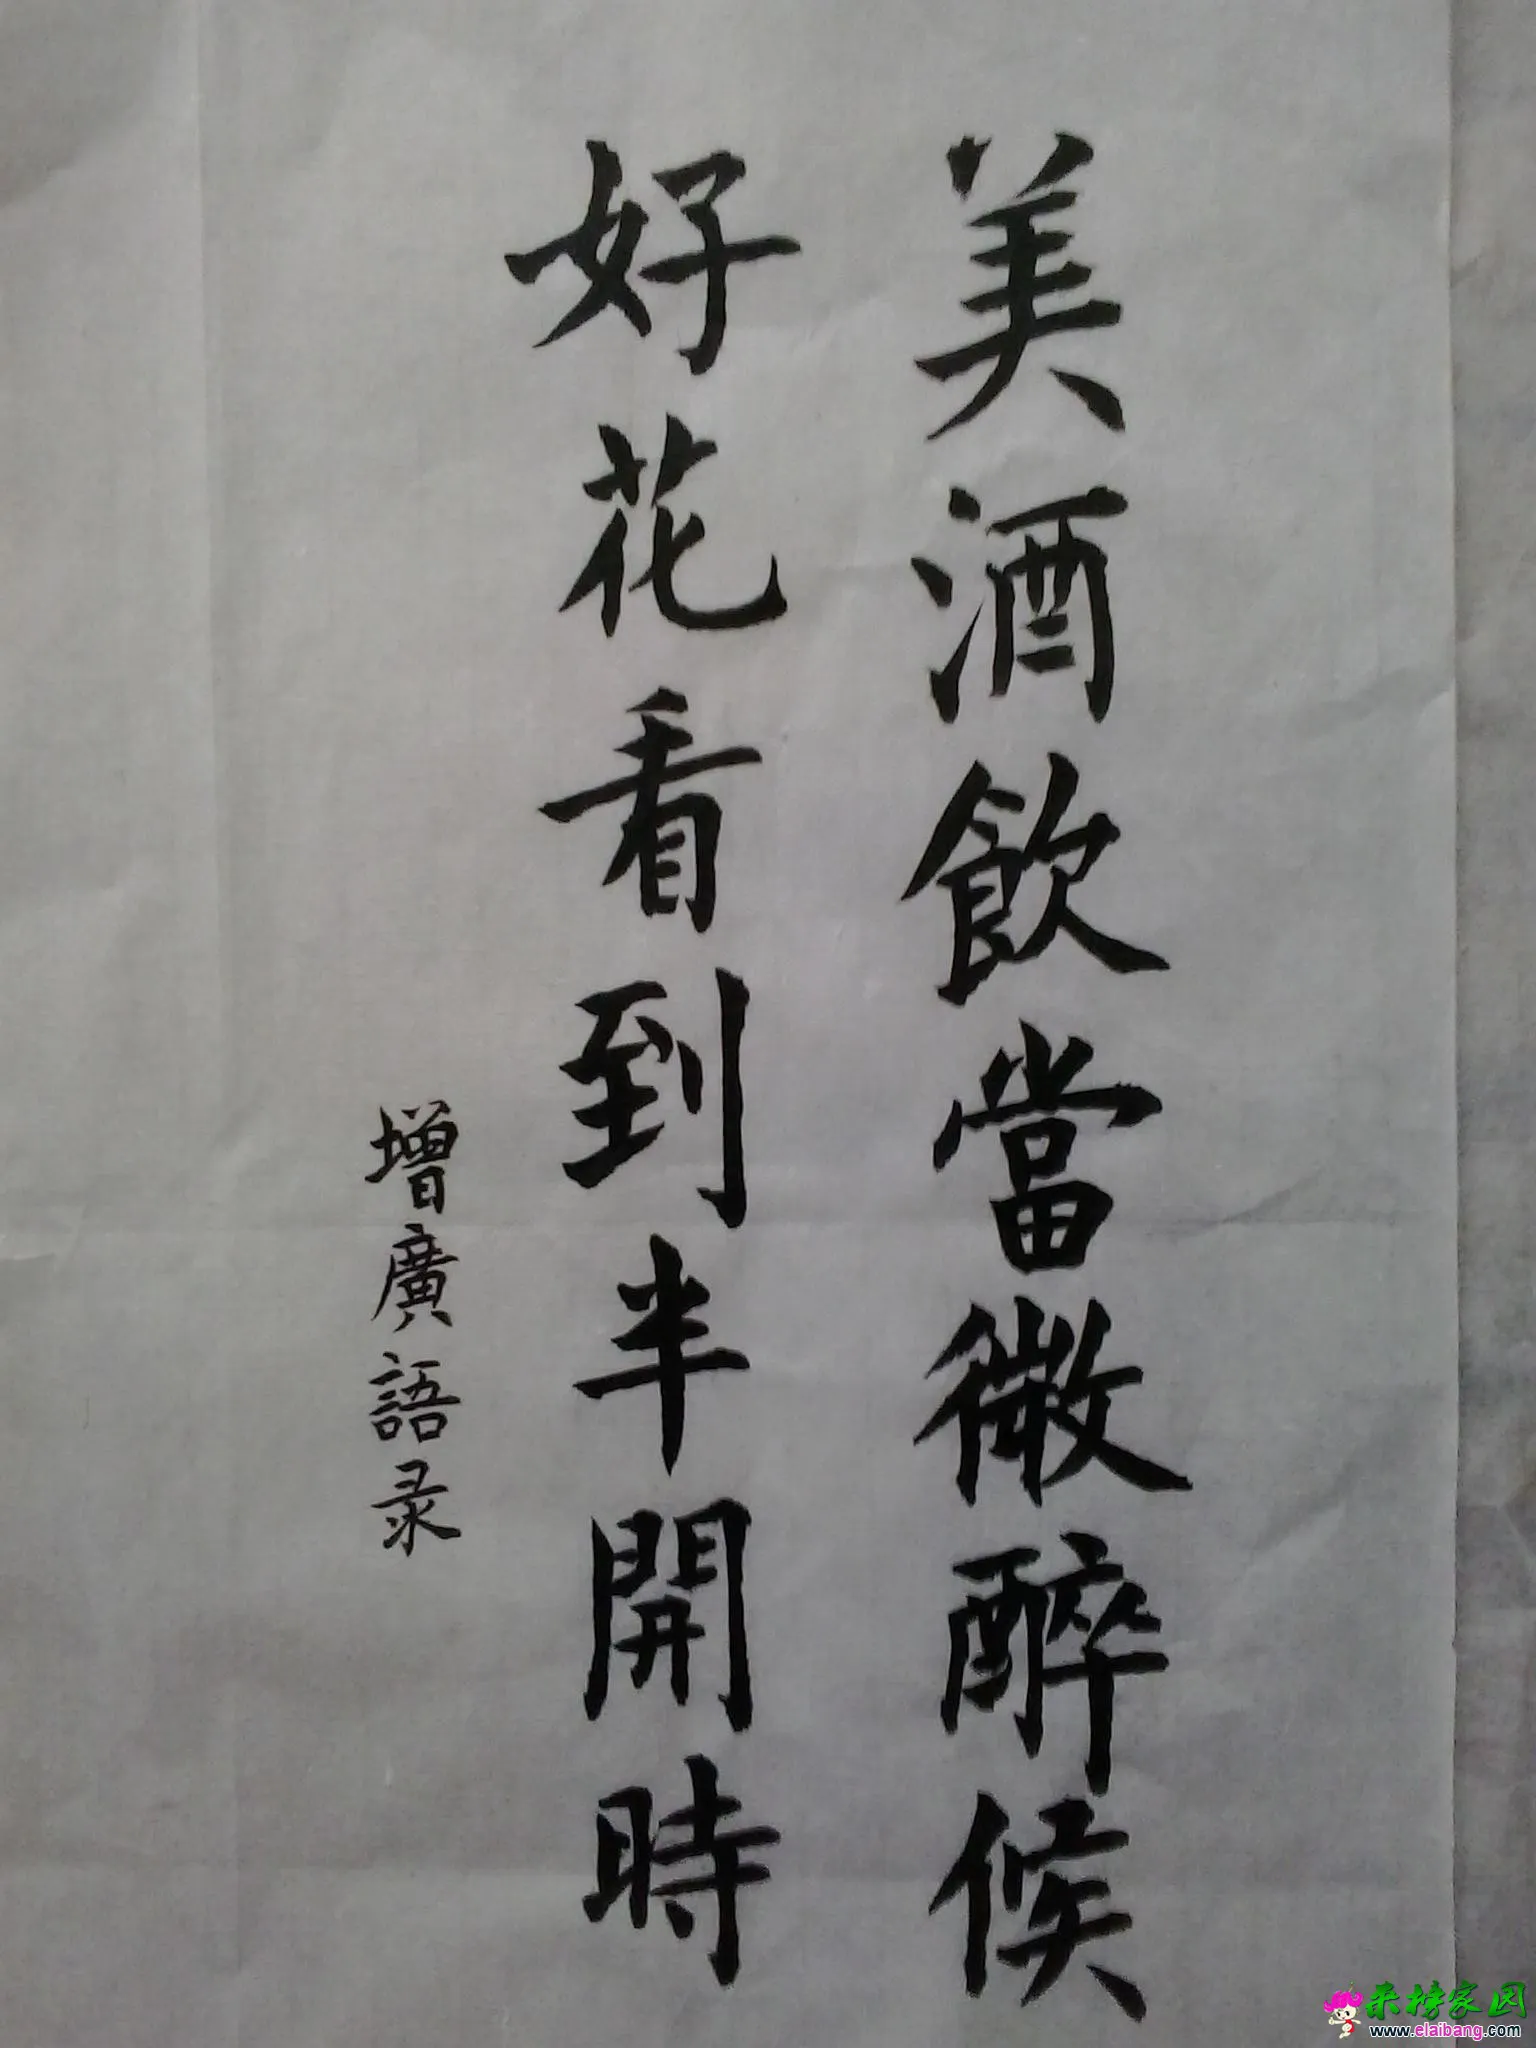 美酒飲當微醉候
好花看到半開時
增廣語录
来榜家园
www.elaibang.com